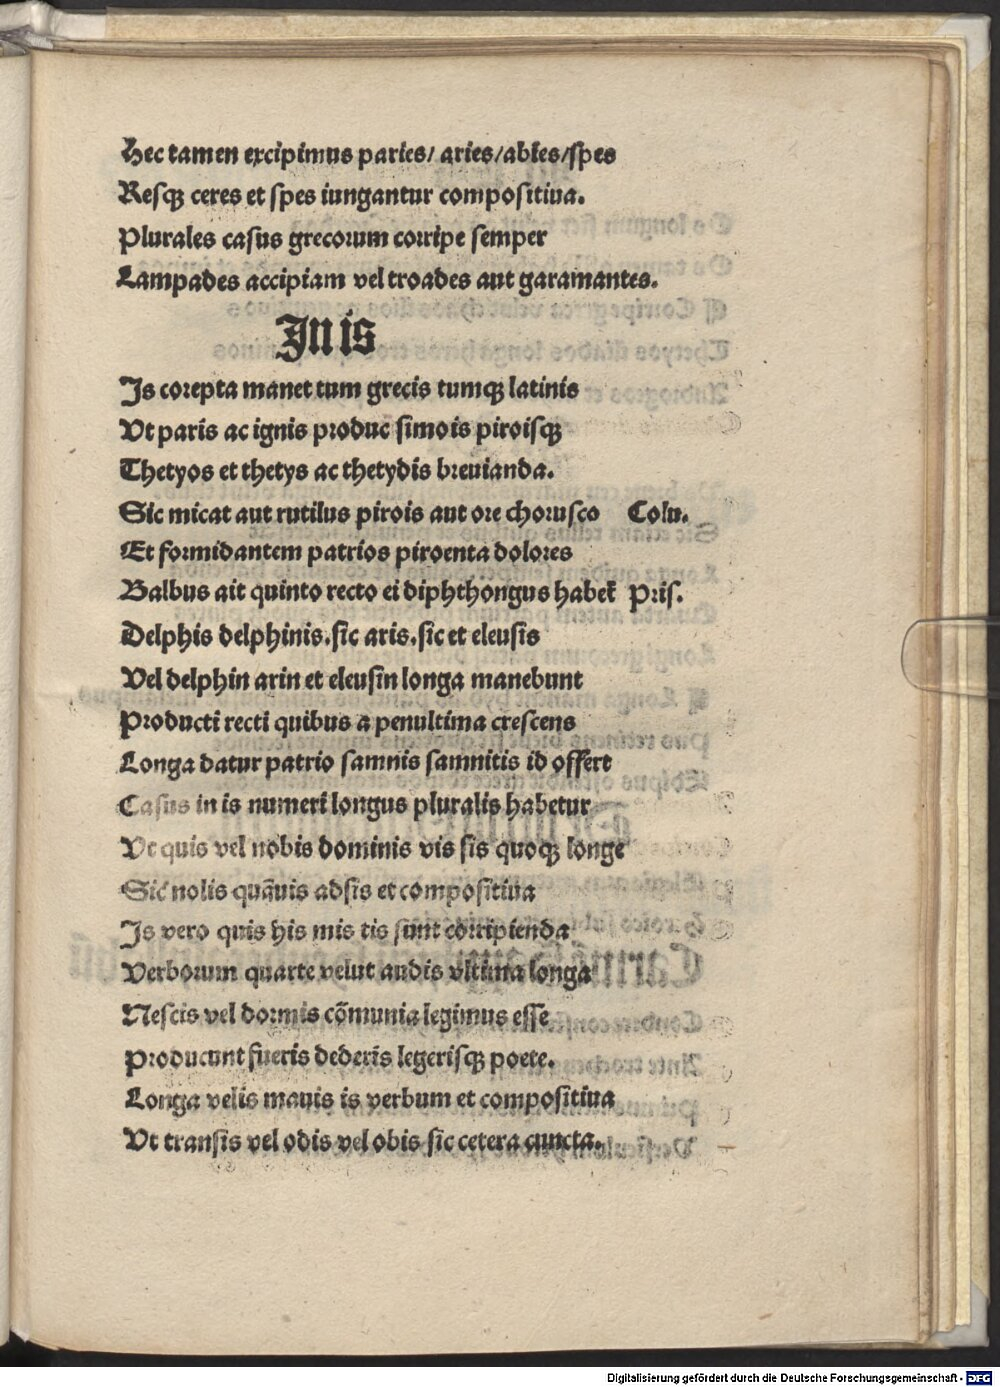 Hec tamen excipimus paries/ aries/abies/spes
Resqꝫ ceres et spes iungantur compositiua.
Plurales casus grecorum corripe semper
Lampades accipiam vel troades aut garamantes.
In is
Is corepta manet tum grecis tumqꝫ latinis
Vt paris ac ignis produc simois piroisqꝫ
Thetyos et thetys ac thetydis breuianda.
Sic micat aut rutilus pirois aut ore chorusco Colu.
Et formidantem patrios piroenta dolores
Balbus ait quinto recto ei diphthongus habet̄ Pris.
Delphis delphinis.sic aris.sic et eleusis
Vel delphin arin et eleusin longa manebunt
Producti recti quibus a penultima crescens
Longa datur patrio samnis samnitis id offert
Casus in is numeri longus pluralis habetur
Vt quis vel nobis dominis vis sis quoqꝫ longe
Sic nolis quāuis adsis et compositiua
Is vero quis his mis tis sunt corripienda
Verborum quarte velut audis vltima longa
Nescis vel dormis cōmunia legimus esse
Producunt fueris dederis legerisqꝫ poete.
Longa velis mauis is verbum et compositiua
Vt transis vel odis vel obis sic cetera cuncta.
Digitalisierung gefördert durch die Deutsche Forschungsgemeinschaft - DFG